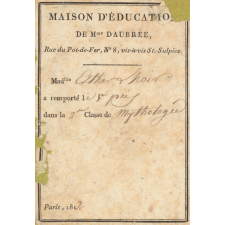 MAISON D'ÉDUCATION
DE Mme DAUBRÉE,
Rue du Pot-de-Fer, No 8, vis-à-vis St-Sulpice.
Madlle
a remporté le 1er prix
dans la 2e Classe de Mythologie
Paris, 18